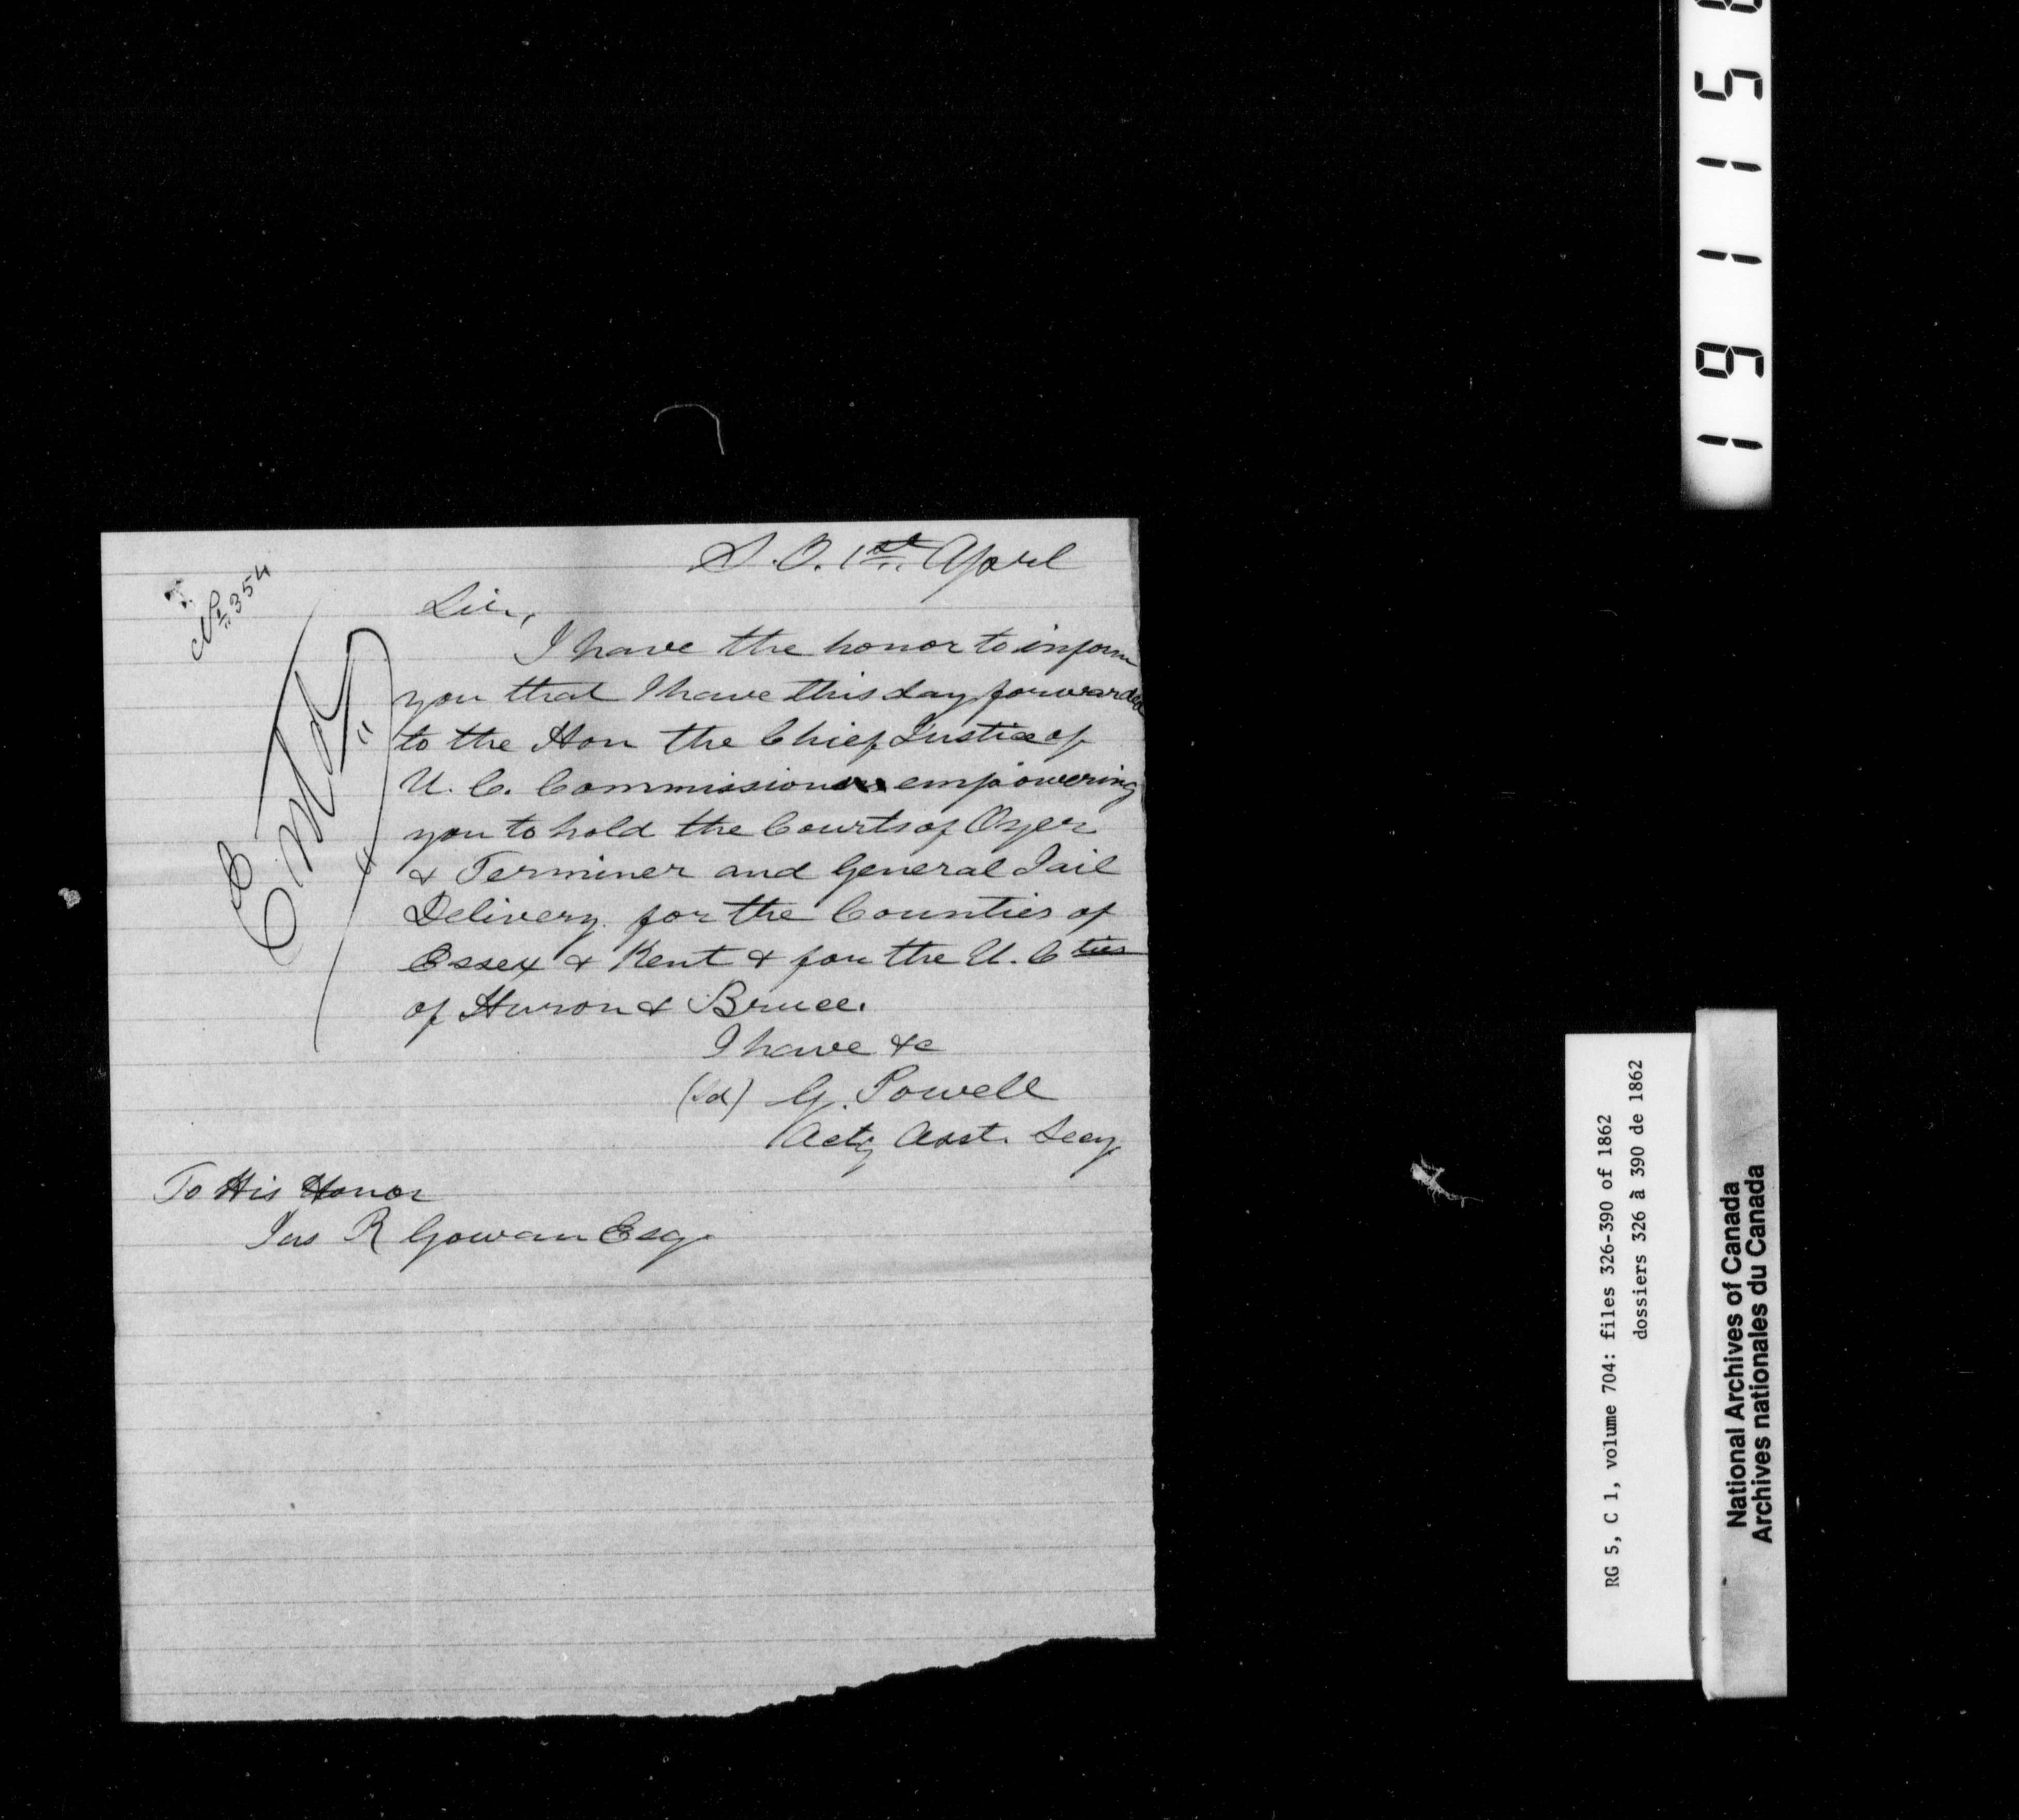 S.O. 1st April
No 354
Entd
Sir,
I have the honor to inform
you that I have this day forwarded
to the Hon the Chief Justice of
U. C. Commissions empowering
you to hold the Courts of Oyer
& Terminer and General Jail
Delivery for the Counties of
Essex & Kent & for the U. C ties
of Huron & Bruce.
I have &c
(sd) G. Powell
Actg Asst. Secy
To His Honor
Jas R Gowan Esq.
RG 5, C 1, volume 704: files 326-390 of 1862
dossiers 326 à 390 de 1862
National Archives of Canada
Archives nationales du Canada